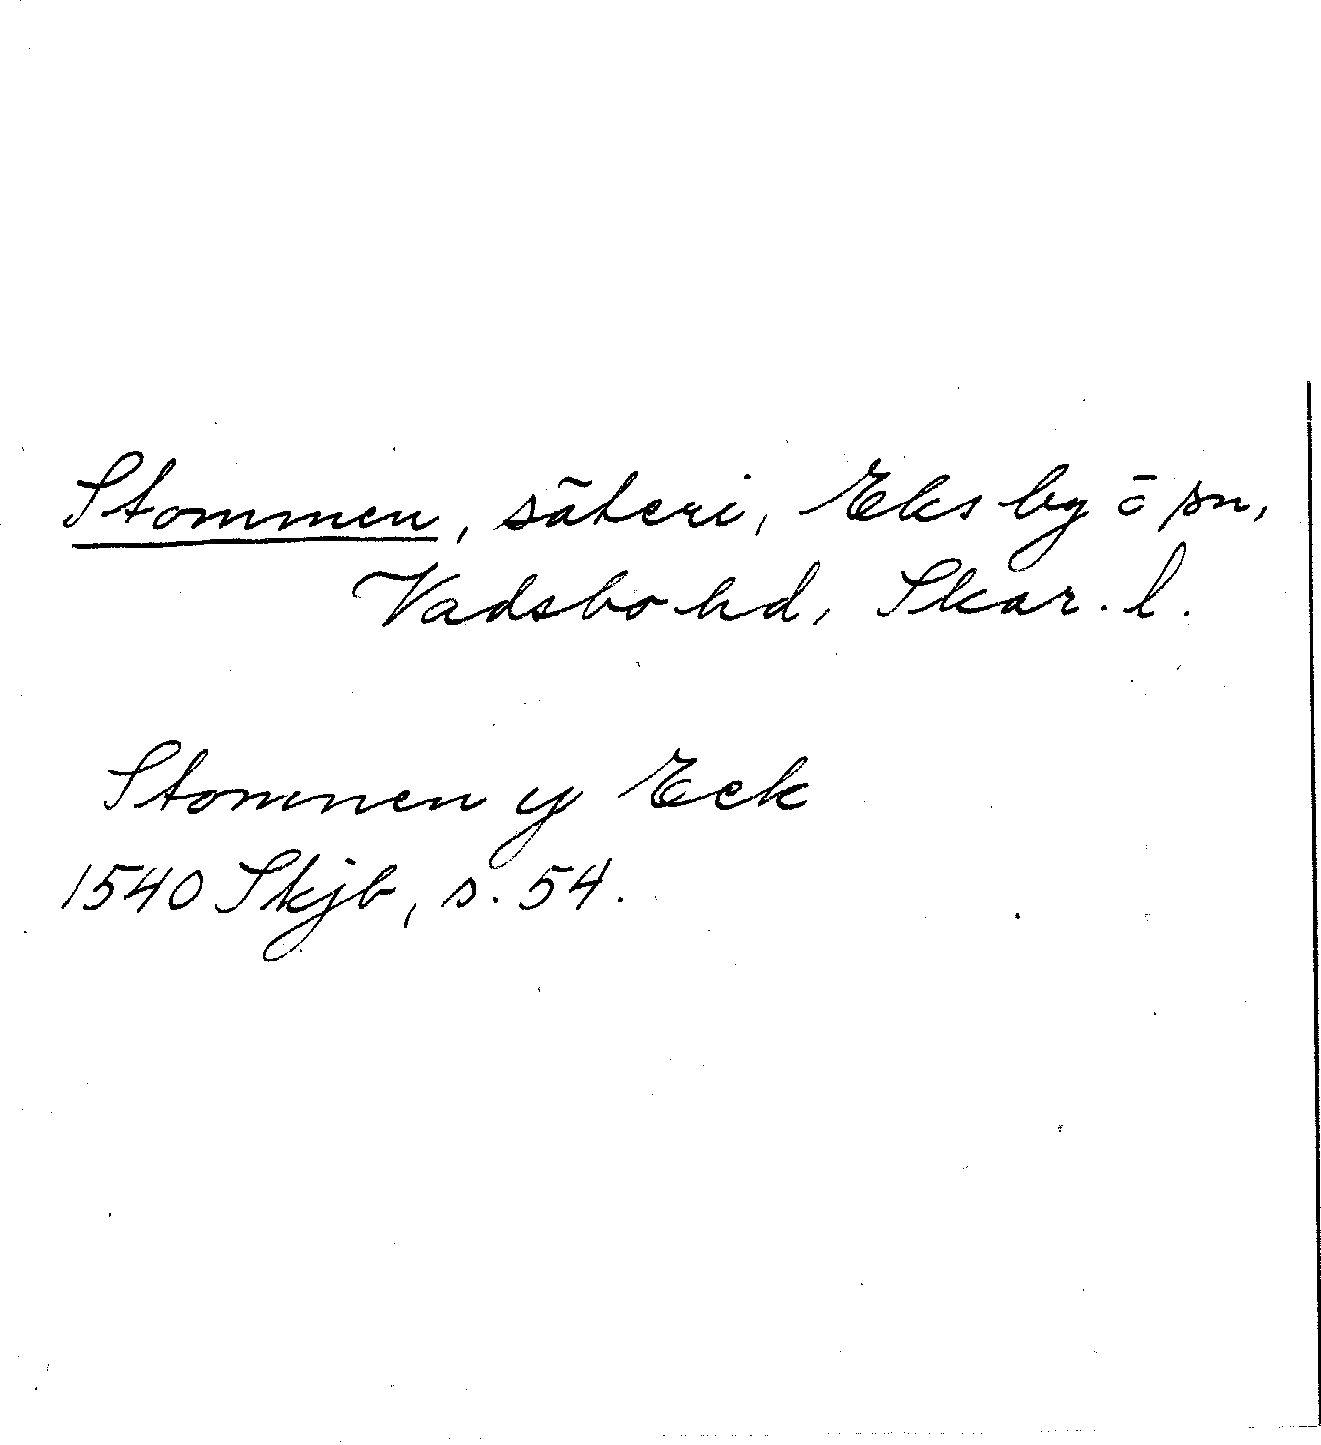 Stommen, säteri, Eks by o sn,
Vadsbo hd, Skar. l.
Stommen y Eck
1540 Skjb, s. 54.